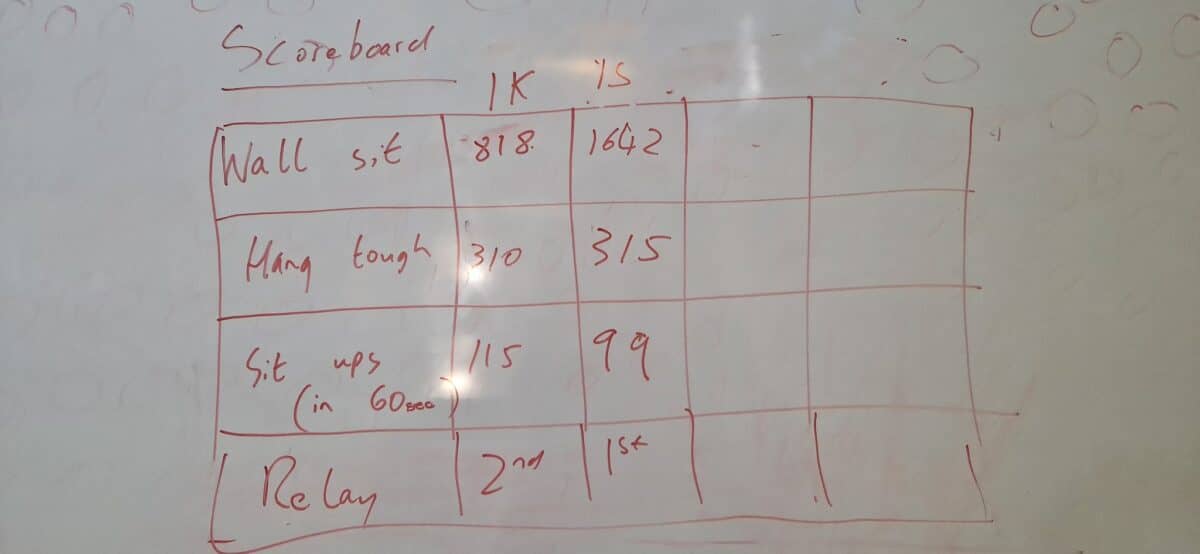 Scoreboard
1K 1S
Wall sit 818 1642
Hang tough 310 315
Sit ups 115 99
(in 60sec)
Relay 2nd 1st